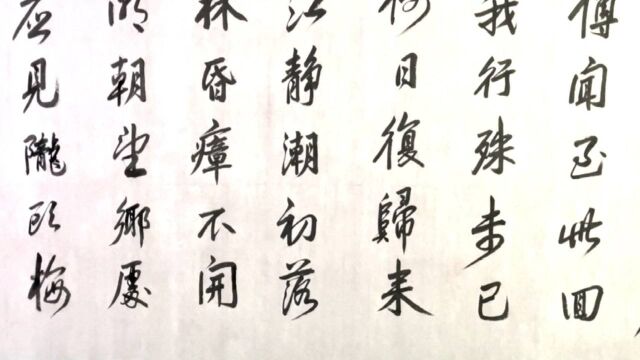 傳聞至此回
我行殊未已
何日復歸来
江静潮初落
林昏瘴不開
明朝望鄉處
应見隴頭梅